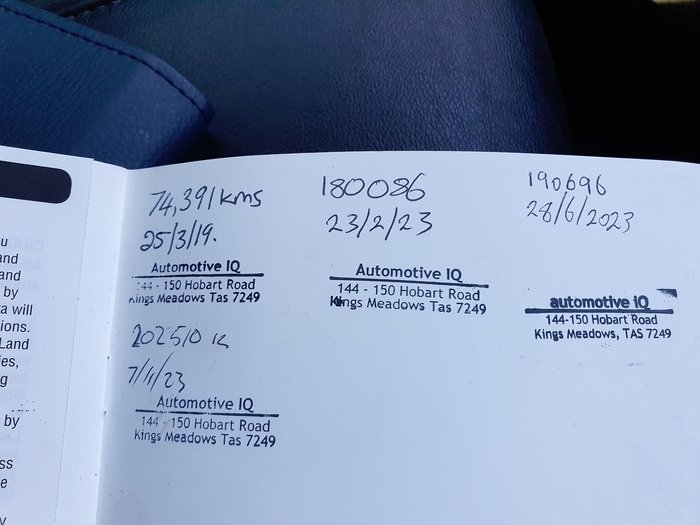 u
and
and
by
a will
ions.
Land
ies,
g
by
ss
e
y
74,391 kms
25/3/19.
Automotive IQ
144 - 150 Hobart Road
Kings Meadows Tas 7249
180086
23/2/23
Automotive IQ
144 - 150 Hobart Road
Kings Meadows Tas 7249
190696
28/6/2023
automotive IQ
144-150 Hobart Road
Kings Meadows, TAS 7249
202510 k
7/11/23
Automotive IQ
144 - 150 Hobart Road
Kings Meadows Tas 7249